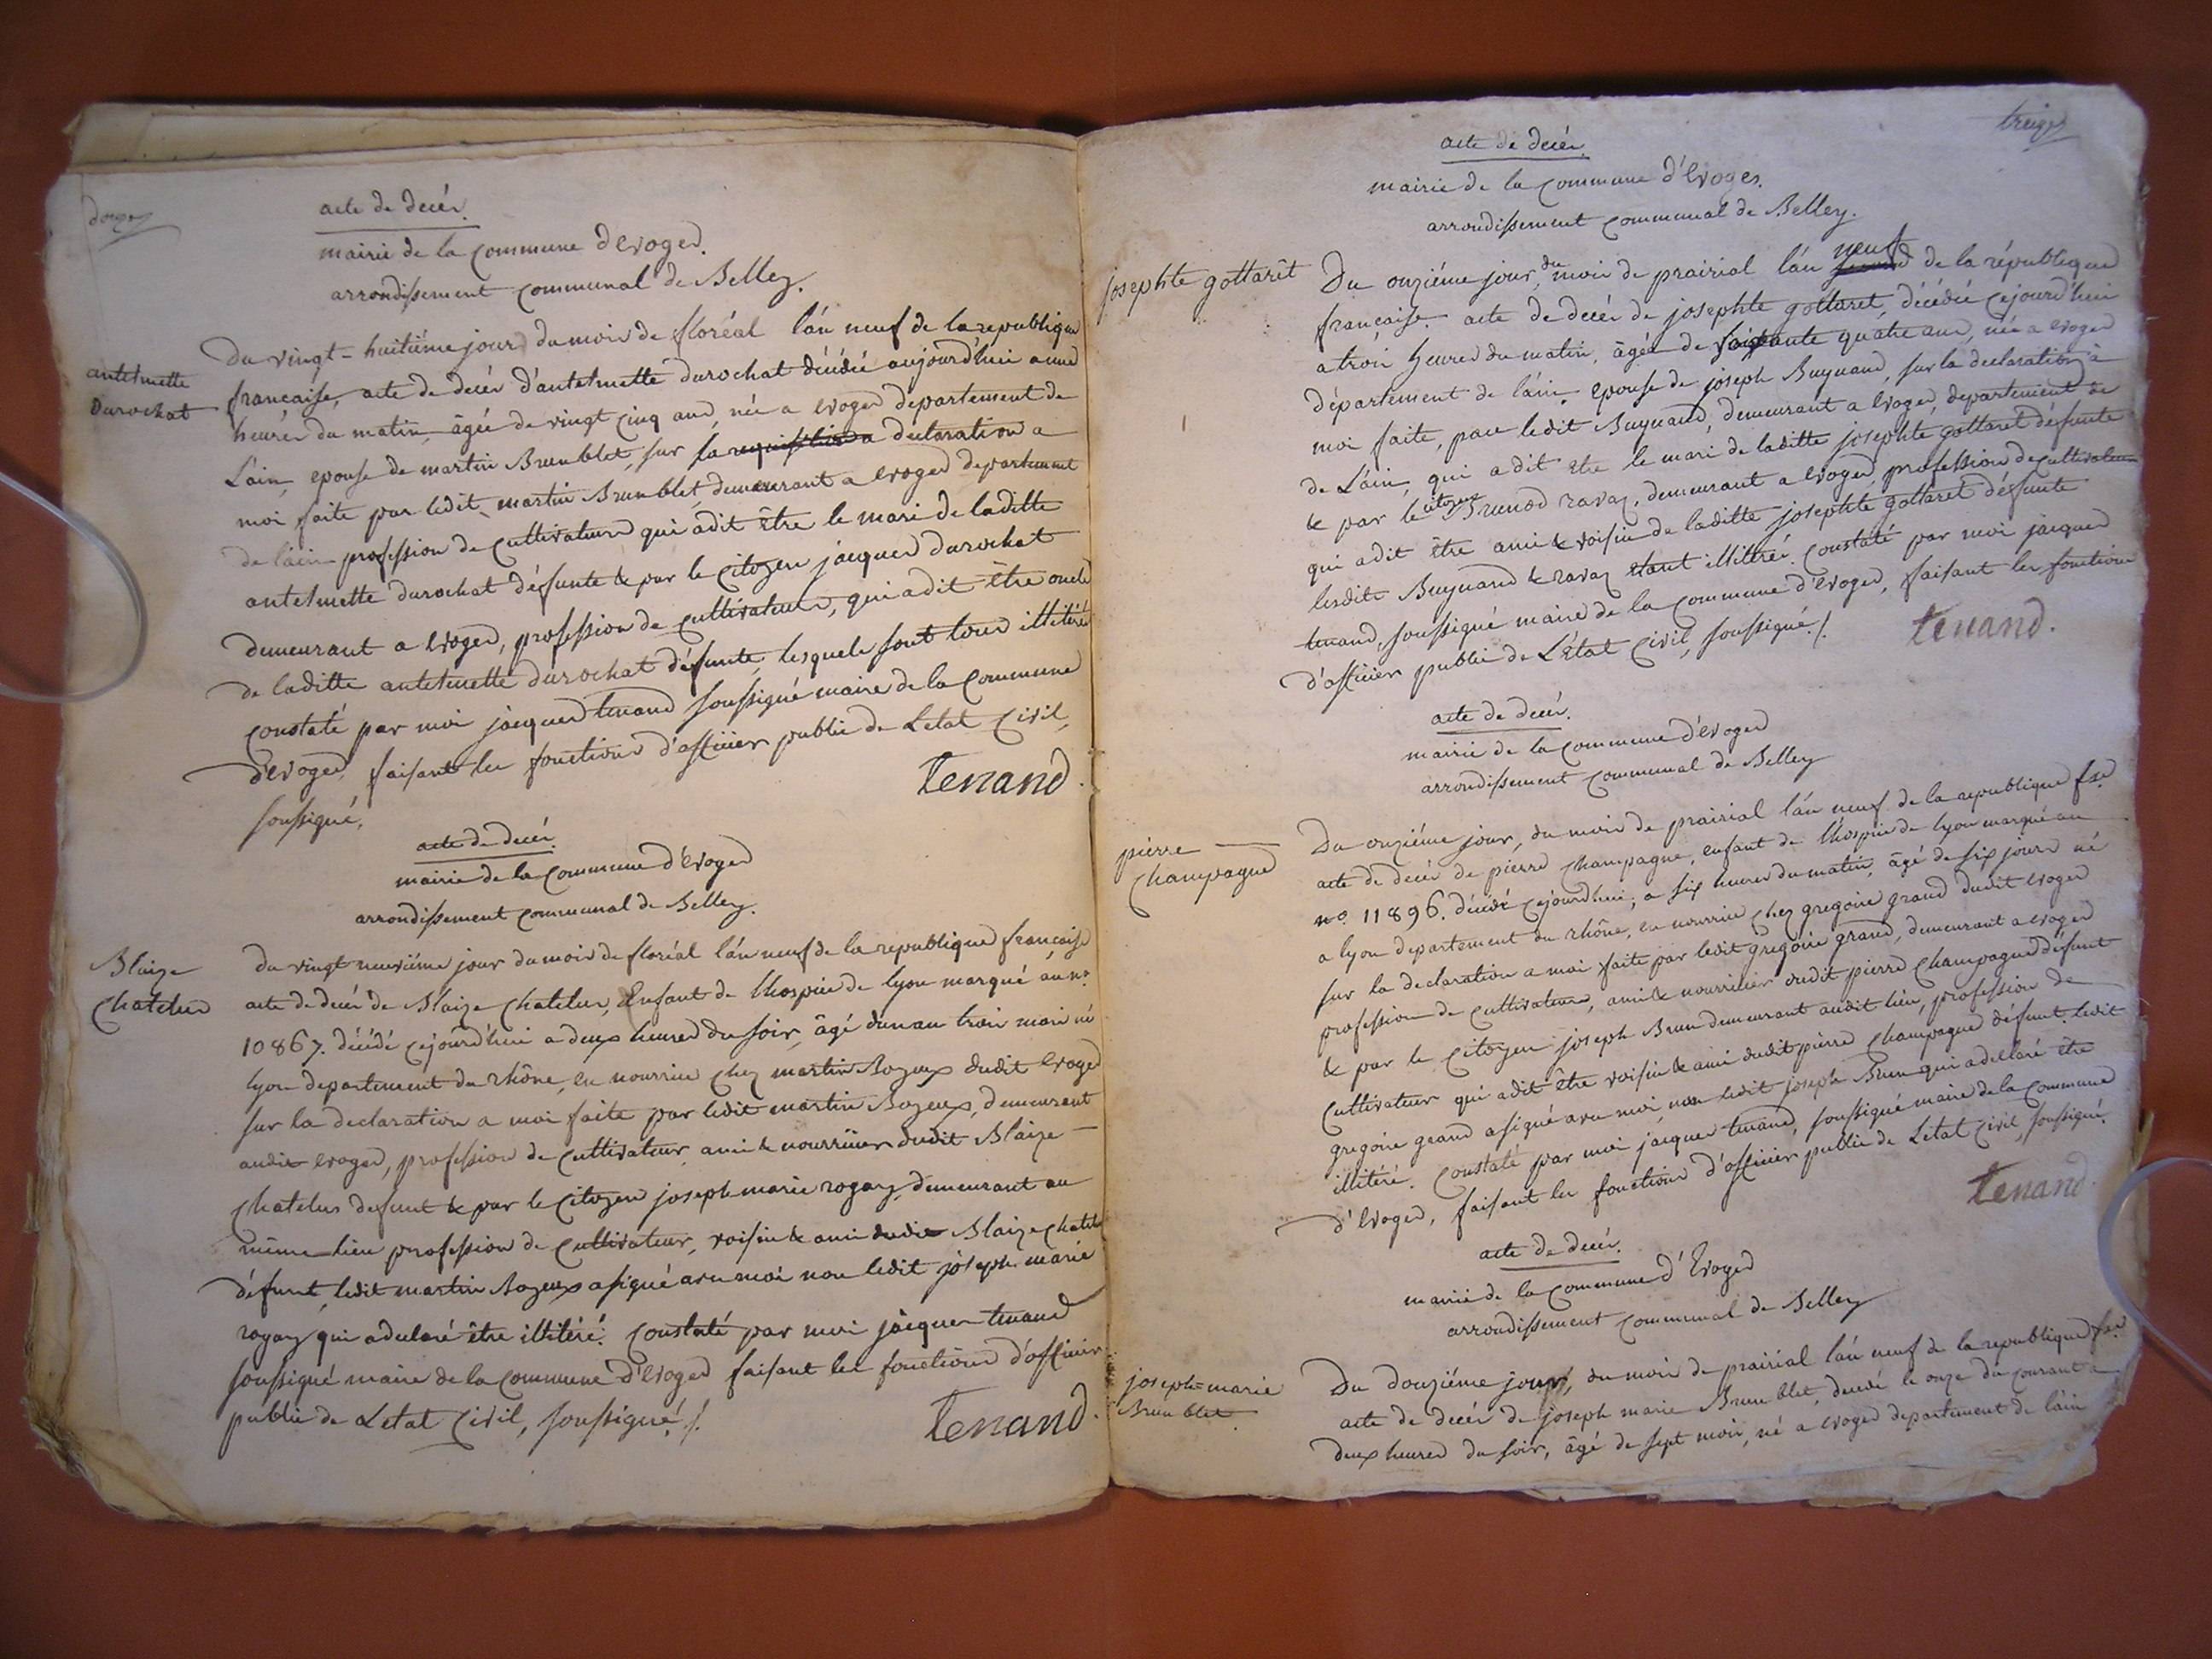 douze
acte de decés.
mairie de la commune d'Evoges.
arrondissement communal de Belley.
antelmette
Durochat
Du vingt-huitiéme jour du mois de floréal l'an neuf de la republique
francaise, acte de decés d'antelmette durochat décédée aujourd'hui a une
heures du matin, âgée de vingt cinq ans, née a Evoges departement de
L'ain, epouse de martin Brun blet, sur la declaration a
moi faite par ledit martin Brun blet, demeurant a evoges departement
de l'ain profession de cultivateur qui a dit être le mari de laditte
antelmette durochat défunte & par le Citoyen jacques durochat
demeurant a Evoges, profession de cultivateur, qui a dit être oncle
de laditte antelmette durochat défunte, lesquels sont tous illitérés
constaté par moi jacques tenand soussigné maire de la commune
d'Evoges, faisant les fonctions d'officier public de L'etat Civil,
soussigné.
tenand.
acte de decés.
mairie de la commune d'Evoges
arrondissement communal de Belley.
Blaize
Chatelus
du vingt neuviéme jour du mois de floréal l'an neuf de la republique francaise
acte de decés de Blaize Chatelus, Enfant de l'hospice de lyon marqué au n.o
10867. décédé cejourd'hui a deux heures du soir, âgé d'un an trois mois né
lyon departement du rhône, en nourrice chez martin Bozeux dudit Evoges
sur la declaration a moi faite par ledit martin Bozeux, demeurant
audit evoges, profession de cultivateur ami & nourricier dudit Blaize
Chatelus defunt & par le Citoyen joseph marie rogaz, demeurant au
même lieu profession de cultivateur, voisin & ami dudit Blaize chatelus
défunt, ledit martin Bozeux a signé avec moi non ledit joseph marie
rogaz qui a declaré être illitéré. Constaté par moi jacques tenand
soussigné maire de la commune d'Evoges faisant les fonctions d'officier
public de L'etat Civil, soussigné./.
tenand.
treize
acte de decés.
mairie de la commune d'Evoges.
arrondissement communal de Belley.
josephte gottarêt
Du onziéme jour du mois de prairial l'an neuf de la république
française. acte de decés de josephte gottaret, décédée cejourd'hui
a trois heures du matin, âgée de soixante quatre ans, née a evoges
département de l'ain, epouse de joseph Buynand, sur la declaration à
moi faite, par ledit Buynand, demeurant a Evoges, departement de
de L'ain, qui a dit etre le mari de laditte josephte gottaret défunte
& par le citoyen Brunod ravaz, demeurant a Evoges, profession de cultivateur
qui a dit être ami & voisin de laditte josephte gottaret défunte
lesdits Buynand & ravaz etant illitéré. Constaté par moi jacques
tenand, soussigné maire de la commune d'Evoges, faisant les fonctions
d'officier public de L'etat Civil, soussigné./.
tenand.
acte de decés.
mairie de la commune d'Evoges
arrondissement communal de Belley
pierre
Champagne
Du onziéme jour, du mois de prairial l'an neuf de la republique fse.
acte de decés de pierre Champagne, enfant de l'hospice de lyon marqué au
n.o 11896. décédé cejourd'hui, a six heures du matin, âgé de six jours né
a lyon departement du rhône, en nourrice chez gregoire grand dudit evoges
sur la declaration a moi faite par ledit gregoire grand, demeurant a evoges
profession de cultivateur, ami & nourricier dudit pierre Champagne défunt
& par le Citoyen joseph Brun demeurant audit lieu, profession de
Cultivateur qui a dit être voisin & ami dudit pierre Champagne défunt. ledit
gregoire grand a signé avec moi, non ledit joseph Brun qui a declaré être
illitéré. Constaté par moi jacques tenand, soussigné maire de la commune
d'Evoges, faisant les fonctions d'officier public de L'etat Civil, soussigné.
tenand.
acte de decés.
mairie de la commune d'Evoges
arrondissement communal de Belley
joseph=marie
Brun blet
Du douziéme jour, du mois de prairial l'an neuf de la republique fse.
acte de decés de joseph marie Brun blet, decedé le onze du courant a
deux heures du soir, âgé de sept mois, né a evoges departement de l'ain